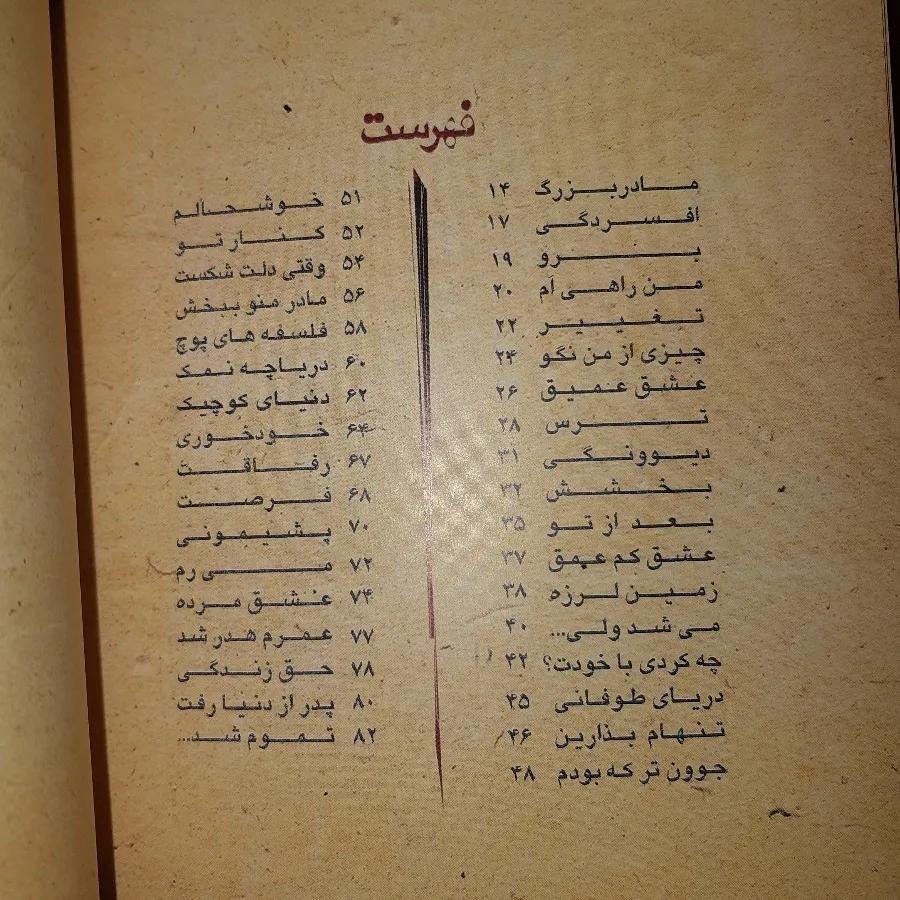 فهرست
مادربزرگ ۱۴
افسردگی ۱۷
برو ۱۹
من راهی ام ۲۰
تغییر ۲۲
چیزی از من نگو ۲۴
عشق عمیق ۲۶
ترس ۲۸
دیوونگی ۳۱
بخشش ۳۲
بعد از تو ۳۵
عشق کم عمق ۳۷
زمین لرزه ۳۸
می شد ولی... ۴۰
چه کردی با خودت؟ ۴۲
دریای طوفانی ۴۵
تنهام بذارین ۴۶
جوون تر که بودم ۴۸
خوشحالم ۵۱
کنار تو ۵۲
وقتی دلت شکست ۵۴
مادر منو ببخش ۵۶
فلسفه های پوچ ۵۸
دریاچه نمک ۶۰
دنیای کوچیک ۶۲
خودخوری ۶۴
رفاقت ۶۷
فرصت ۶۸
پشیمونی ۷۰
می رم ۷۲
عشق مرده ۷۴
عمرم هدر شد ۷۷
حق زندگی ۷۸
پدر از دنیا رفت ۸۰
تموم شد... ۸۲